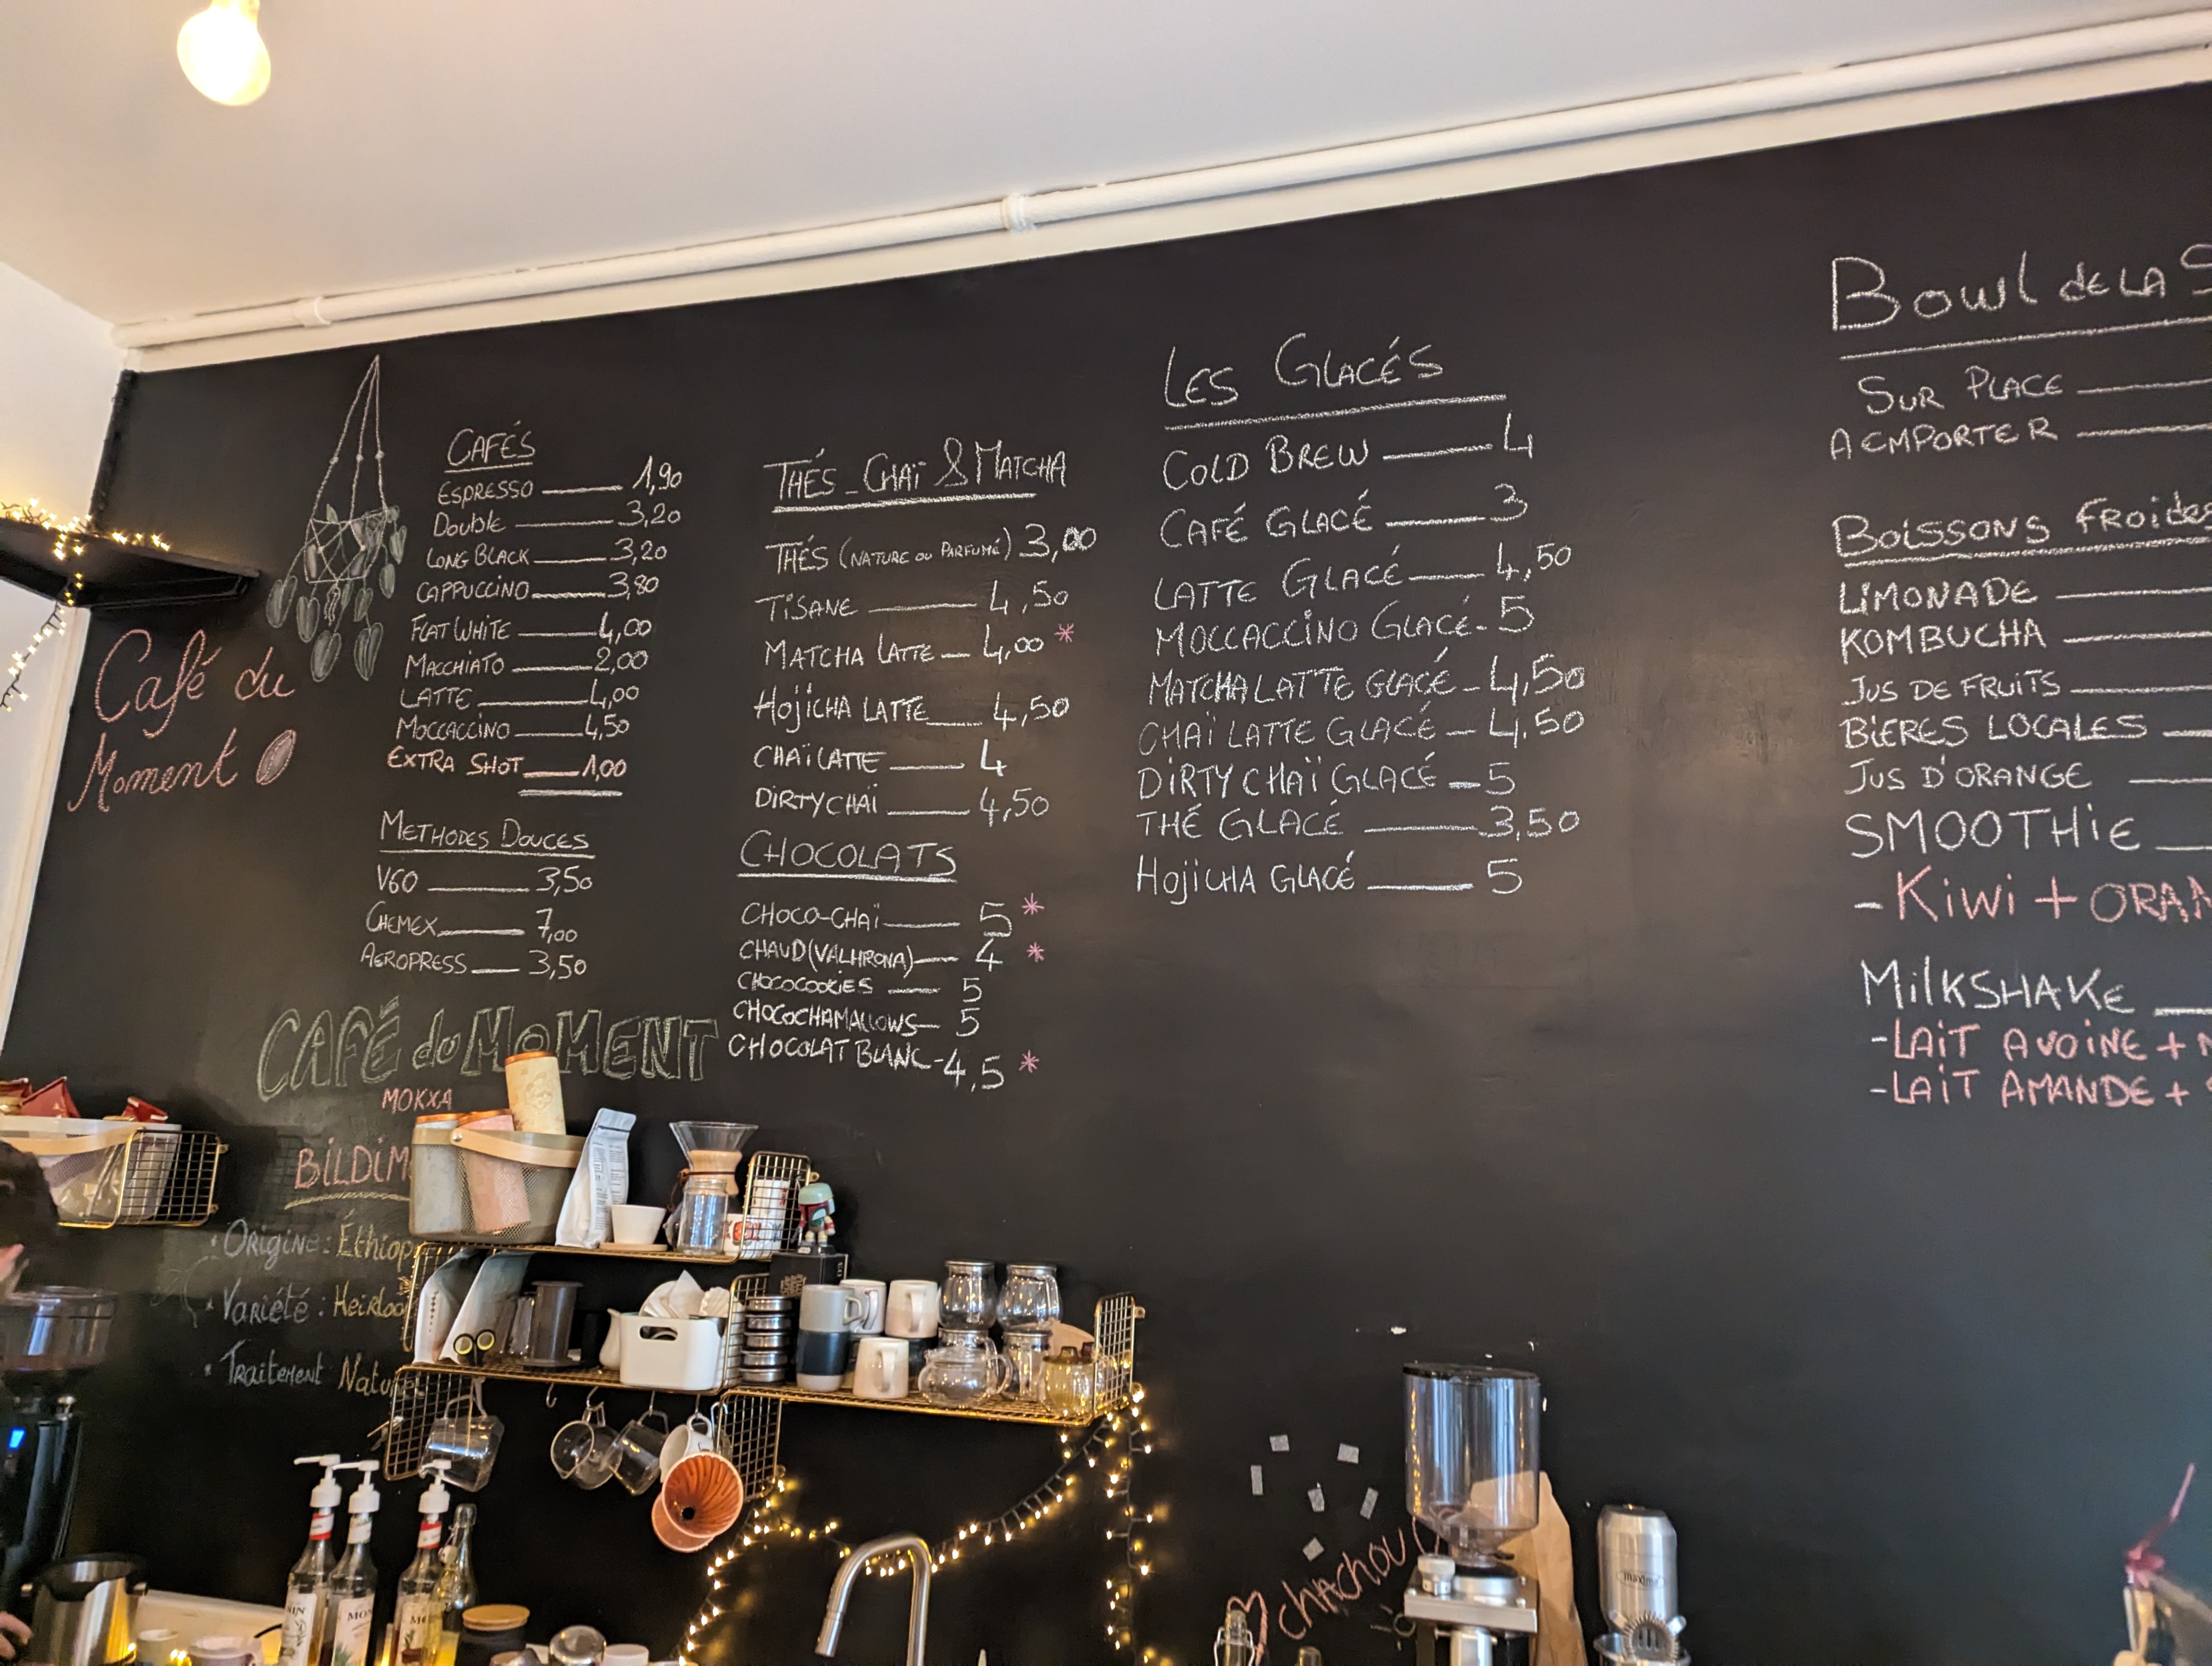 Café du
Moment
CAFÉS
ESPRESSO 1,90
DOUBLE 3,20
LONG BLACK 3,20
CAPPUCCINO 3,80
FLAT WHITE 4,00
MACCHIATO 2,00
LATTE 4,00
MOCCACCINO 4,50
EXTRA SHOT 1,00
METHODES DOUCES
V60 3,50
CHEMEX 7,00
AEROPRESS 3,50
CAFÉ du MOMENT
MOKXA
BILDIM
• ORIGINE : Éthiop
• VARIÉTÉ : HEIRLOO
• TRAITEMENT NATURE
THÉS - CHAÏ & MATCHA
THÉS (NATURE OU PARFUMÉ) 3,00
TISANE 4,50
MATCHA LATTE 4,00 *
HOJICHA LATTE 4,50
CHAÏ LATTE 4
DIRTY CHAÏ 4,50
CHOCOLATS
CHOCO-CHAÏ 5 *
CHAUD (VALHRONA) 4 *
CHOCOCOOKIES 5
CHOCOCHAMALLOWS 5
CHOCOLAT BLANC - 4,5 *
LES GLACÉS
COLD BREW 4
CAFÉ GLACÉ 3
LATTE GLACÉ 4,50
MOCCACCINO GLACÉ - 5
MATCHA LATTE GLACÉ - 4,50
CHAÏ LATTE GLACÉ - 4,50
DIRTY CHAÏ GLACÉ - 5
THÉ GLACÉ 3,50
HOJICHA GLACÉ 5
BOWL DE LA S
SUR PLACE
A EMPORTER
BOISSONS FROIDES
LIMONADE
KOMBUCHA
JUS DE FRUITS
BIERES LOCALES
JUS D'ORANGE
SMOOTHIE
- KIWI + ORAN
MILKSHAKE
- LAIT AVOINE +
- LAIT AMANDE +
CHACHOU